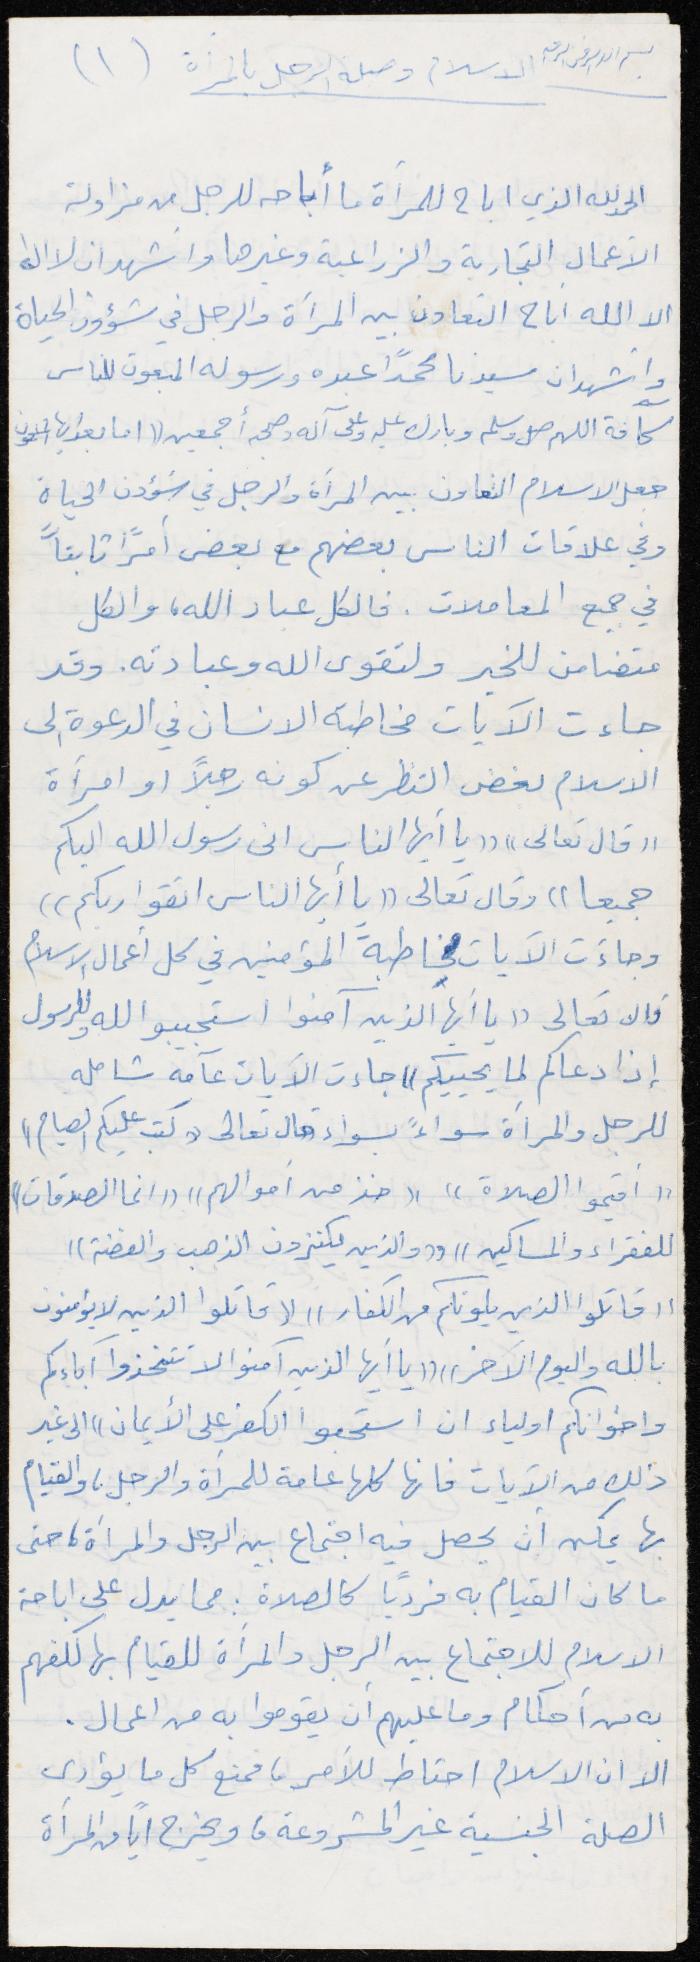 بسم الله الرحمن الرحيم الاسلام وصلة الرجل بالمرأة (١)
الحمد لله الذي اباح للمرأة ما أباحه للرجل من مزاولة
الأعمال التجارية والزراعية وغيرها وأشهد ان لا اله
الا الله اباح التعاون بين المرأة والرجل في شؤون الحياة
وأشهد ان سيدنا محمدًا عبده ورسوله المبعوث للناس
كافة اللهم صل وسلم وبارك عليه وعلى آله وصحبه أجمعين «اما بعد ايها
جعل الاسلام التعاون بين المرأة والرجل في شؤون الحياة
وفي علاقات الناس بعضهم مع بعض أمرًا ثابتاً
في جميع المعاملات . فالكل عباد الله، والكل
متضامن للخير ولتقوى الله وعبادته. وقد
جاءت الآيات مخاطبة الانسان في الدعوة الى
الاسلام بغض النظر عن كونه رجلاً او امرأة
«قال تعالى» «يا أيها الناس انى رسول الله اليكم
جميعا» وقال تعالى «يا أيها الناس اتقوا ربكم»
وجاءت الآيات مخاطبةً المؤمنين في كل أعمال الاسلام
قال تعالى «يا أيها الذين آمنوا استجيبوا لله وللرسول
إذا دعاكم لما يحييكم» جاءت الآيات عآمة شامله
للرجل والمرأة سواءً بسواء قال تعالى «كتب عليكم الصيام»
«أقيموا الصلاة» «خذ من أموالهم» «انما الصدقات
للفقراء والمساكين» «والذين يكنزون الذهب والفضة»
«قاتلوا الذين يلونكم من الكفار» «قاتلوا الذين لا يؤمنون
بالله واليوم الآخر» «يا أيها الذين آمنوا لا تتخذوا آباءكم
واخوانكم اولياء ان استحبوا الكفر على الأيمان» الى غير
ذلك من الآيات فانها كلها عامة للمرأة والرجل، والقيام
بها يمكن أن يحصل فيه اجتماع بين الرجل والمرأة، حتى
ما كان القيام به فرديًا كالصلاة . مما يدل على اباحة
الاسلام للاجتماع بين الرجل والمرأة للقيام بما كلفهم
به من أحكام وما عليهم أن يقوموا به من اعمال .
الا ان الاسلام احتاط للأمر، فمنع كل ما يؤدى
الصلة الجنسية غير المشروعة، ويخرج أيًا من المرأة